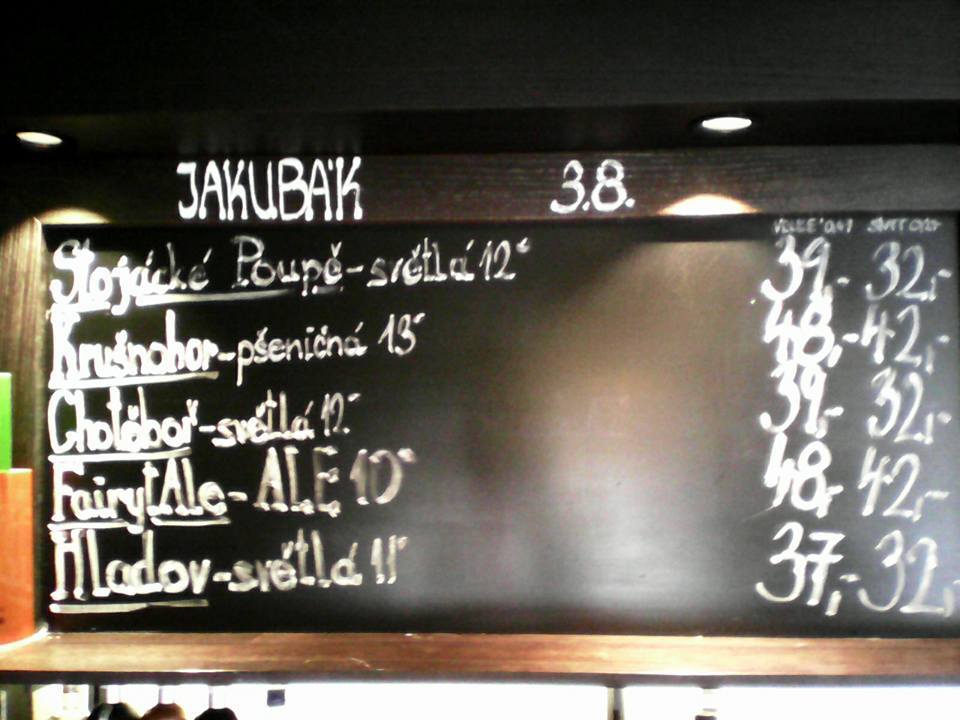 JAKUBÁK 3.8.
Stojácké Poupě - světlá 12° 39,- 32,-
Krušnohor - pšeničná 13° 48,- 42,-
Chotěboř - světlá 12° 39,- 32,-
FairytAle - ALE 10° 48,- 42,-
Hladov - světlá 11° 37,- 32,-